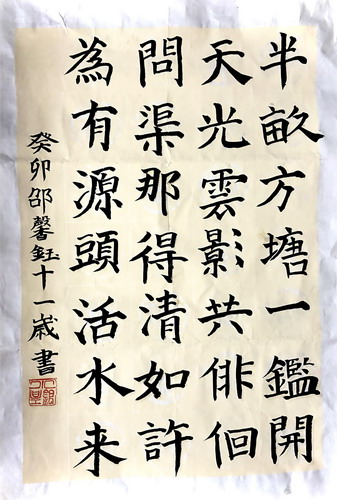 半畝方塘一鑑開
天光雲影共徘徊
問渠那得清如許
為有源頭活水来
癸卯邵馨鈺十一歲書